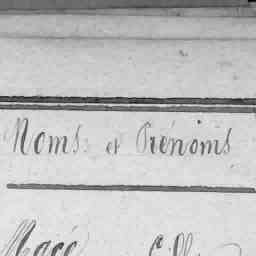 Noms et Prénoms
Macé